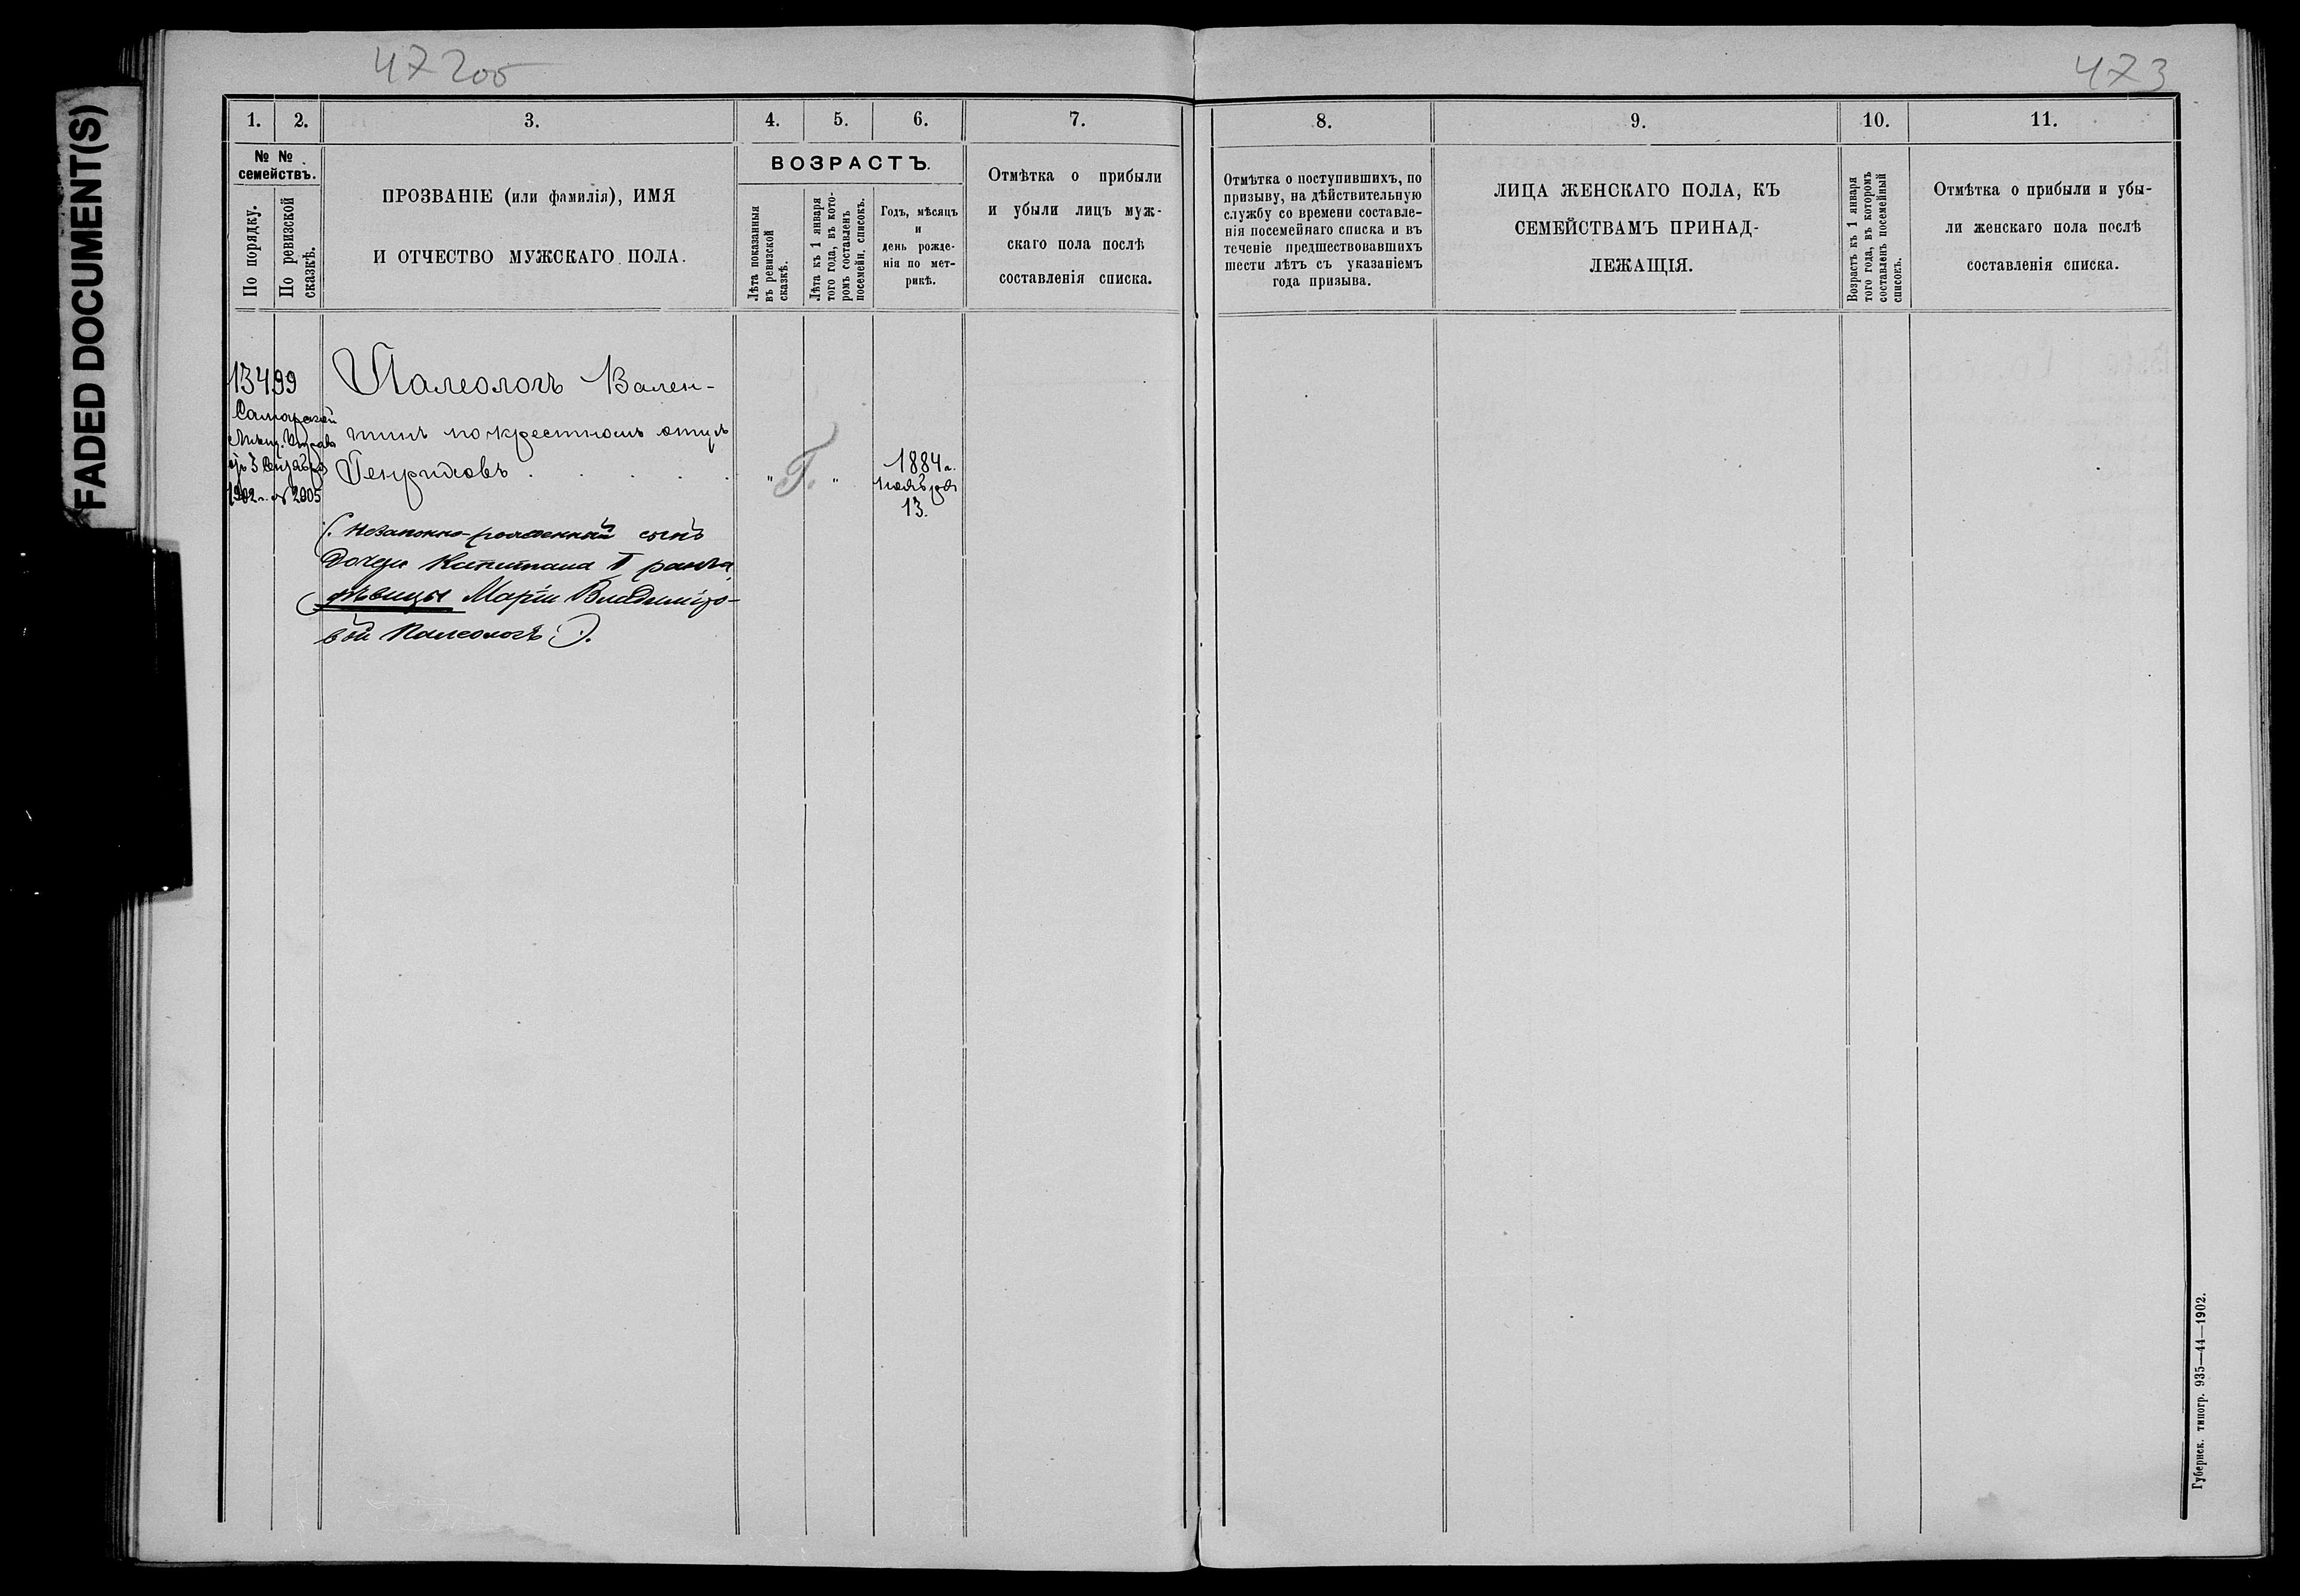 FADED DOCUMENT(S)
472об
473
1.
2.
3.
4.
5.
6.
7.
8.
9.
10.
11.
№ №
семействъ.
По порядку.
По ревизской
сказкѣ.
ПРОЗВАНІЕ (или фамилія), ИМЯ
И ОТЧЕСТВО МУЖСКАГО ПОЛА.
ВОЗРАСТЪ.
Лѣта показанныя
въ ревизской
сказкѣ.
Лѣта къ 1 января
того года, въ кото-
ромъ составленъ
посемейн. списокъ.
Годъ, мѣсяцъ
и
день рожде-
нія по мет-
рикѣ.
Отмѣтка о прибыли
и убыли лицъ муж-
скаго пола послѣ
составленія списка.
Отмѣтка о поступившихъ, по
призыву, на дѣйствительную
службу со времени составле-
нія посемейнаго списка и въ
теченіе предшествовавшихъ
шести лѣтъ съ указаніемъ
года призыва.
ЛИЦА ЖЕНСКАГО ПОЛА, КЪ
СЕМЕЙСТВАМЪ ПРИНАД-
ЛЕЖАЩІЯ.
Возрастъ къ 1 января
того года, въ которомъ
составленъ посемейный
списокъ.
Отмѣтка о прибыли и убы-
ли женскаго пола послѣ
составленія списка.
13499
Самарской
Мѣщ. Управы
3 Сентября
1902 г. № 2005
Палеологъ Вален-
тинъ по крестномъ отцѣ
Генриховъ . . . .
" Г. "
1884 г.
Ноября
13.
(. Незаконно-рожденный сынъ
дочери Капитана I ранга,
дѣвицы Маріи Владиміро-
вой Палеологъ .).
Губернск. типогр. 935—44—1902.